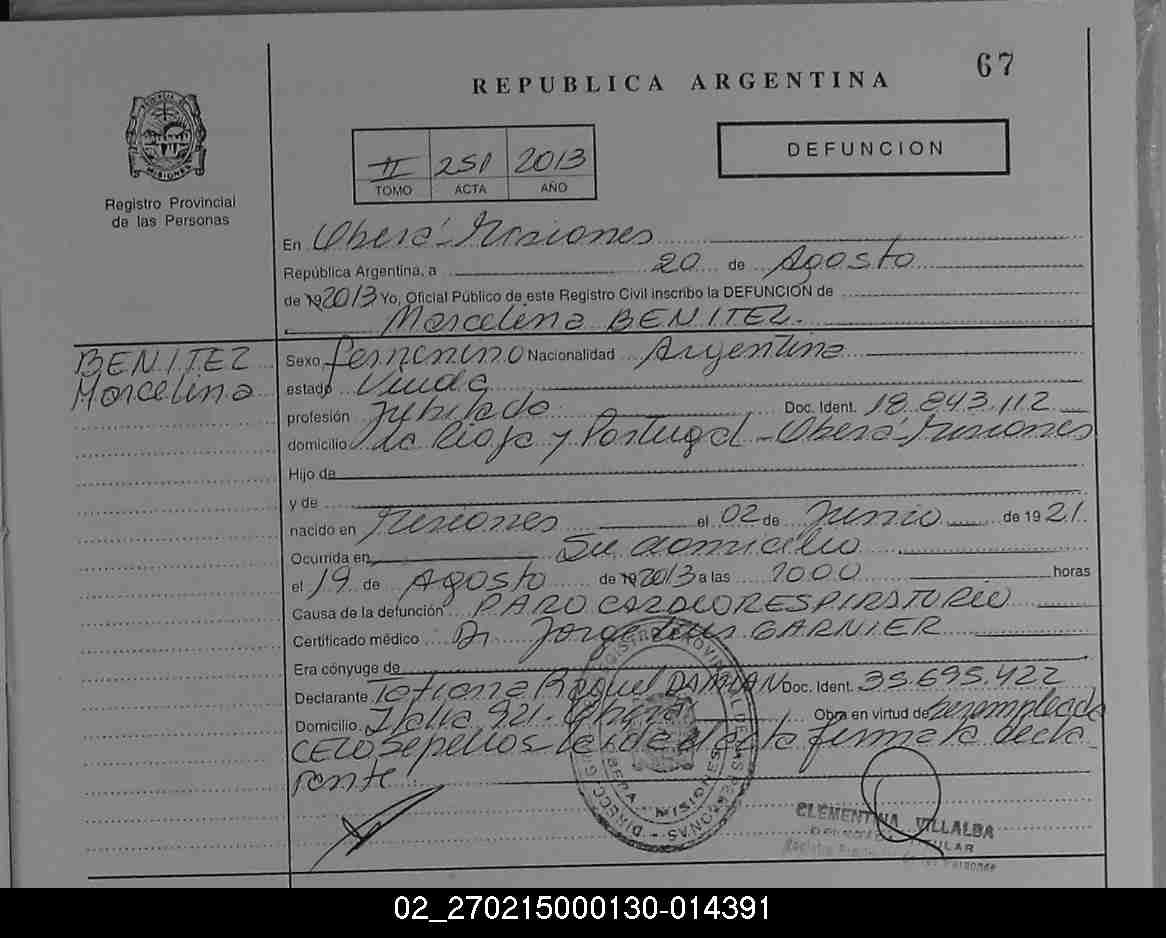 67
REPUBLICA ARGENTINA
DEFUNCION
II 251 2013
TOMO ACTA AÑO
MISIONES
Registro Provincial
de las Personas
En Oberá - Misiones
República Argentina, a 20 de Agosto
de 192013 Yo, Oficial Público de este Registro Civil inscribo la DEFUNCION de
Marcelina BENITEZ.
BENITEZ
Marcelina
Sexo femenino Nacionalidad Argentina
estado Viuda
profesión Jubilada Doc. Ident. 18.843.112
domicilio La Rioja y Portugal - Oberá - Misiones
Hijo de
y de
nacido en Misiones el 02 de Junio de 1921.
Ocurrida en Su domicilio
el 19 de Agosto de 192013 a las 1000 horas
Causa de la defunción PARO CARDIORESPIRATORIO
Certificado médico Dr Jorge Luis GARNIER
Era cónyuge de
Declarante Tatiana Raquel DAMIAN Doc. Ident. 35.695.422
Domicilio Italia 921 - Oberá Obra en virtud de ser empleada
CELO Sepelios - Leída el acta firma la decla
rante
CLEMENTINA VILLALBA
02_270215000130-014391